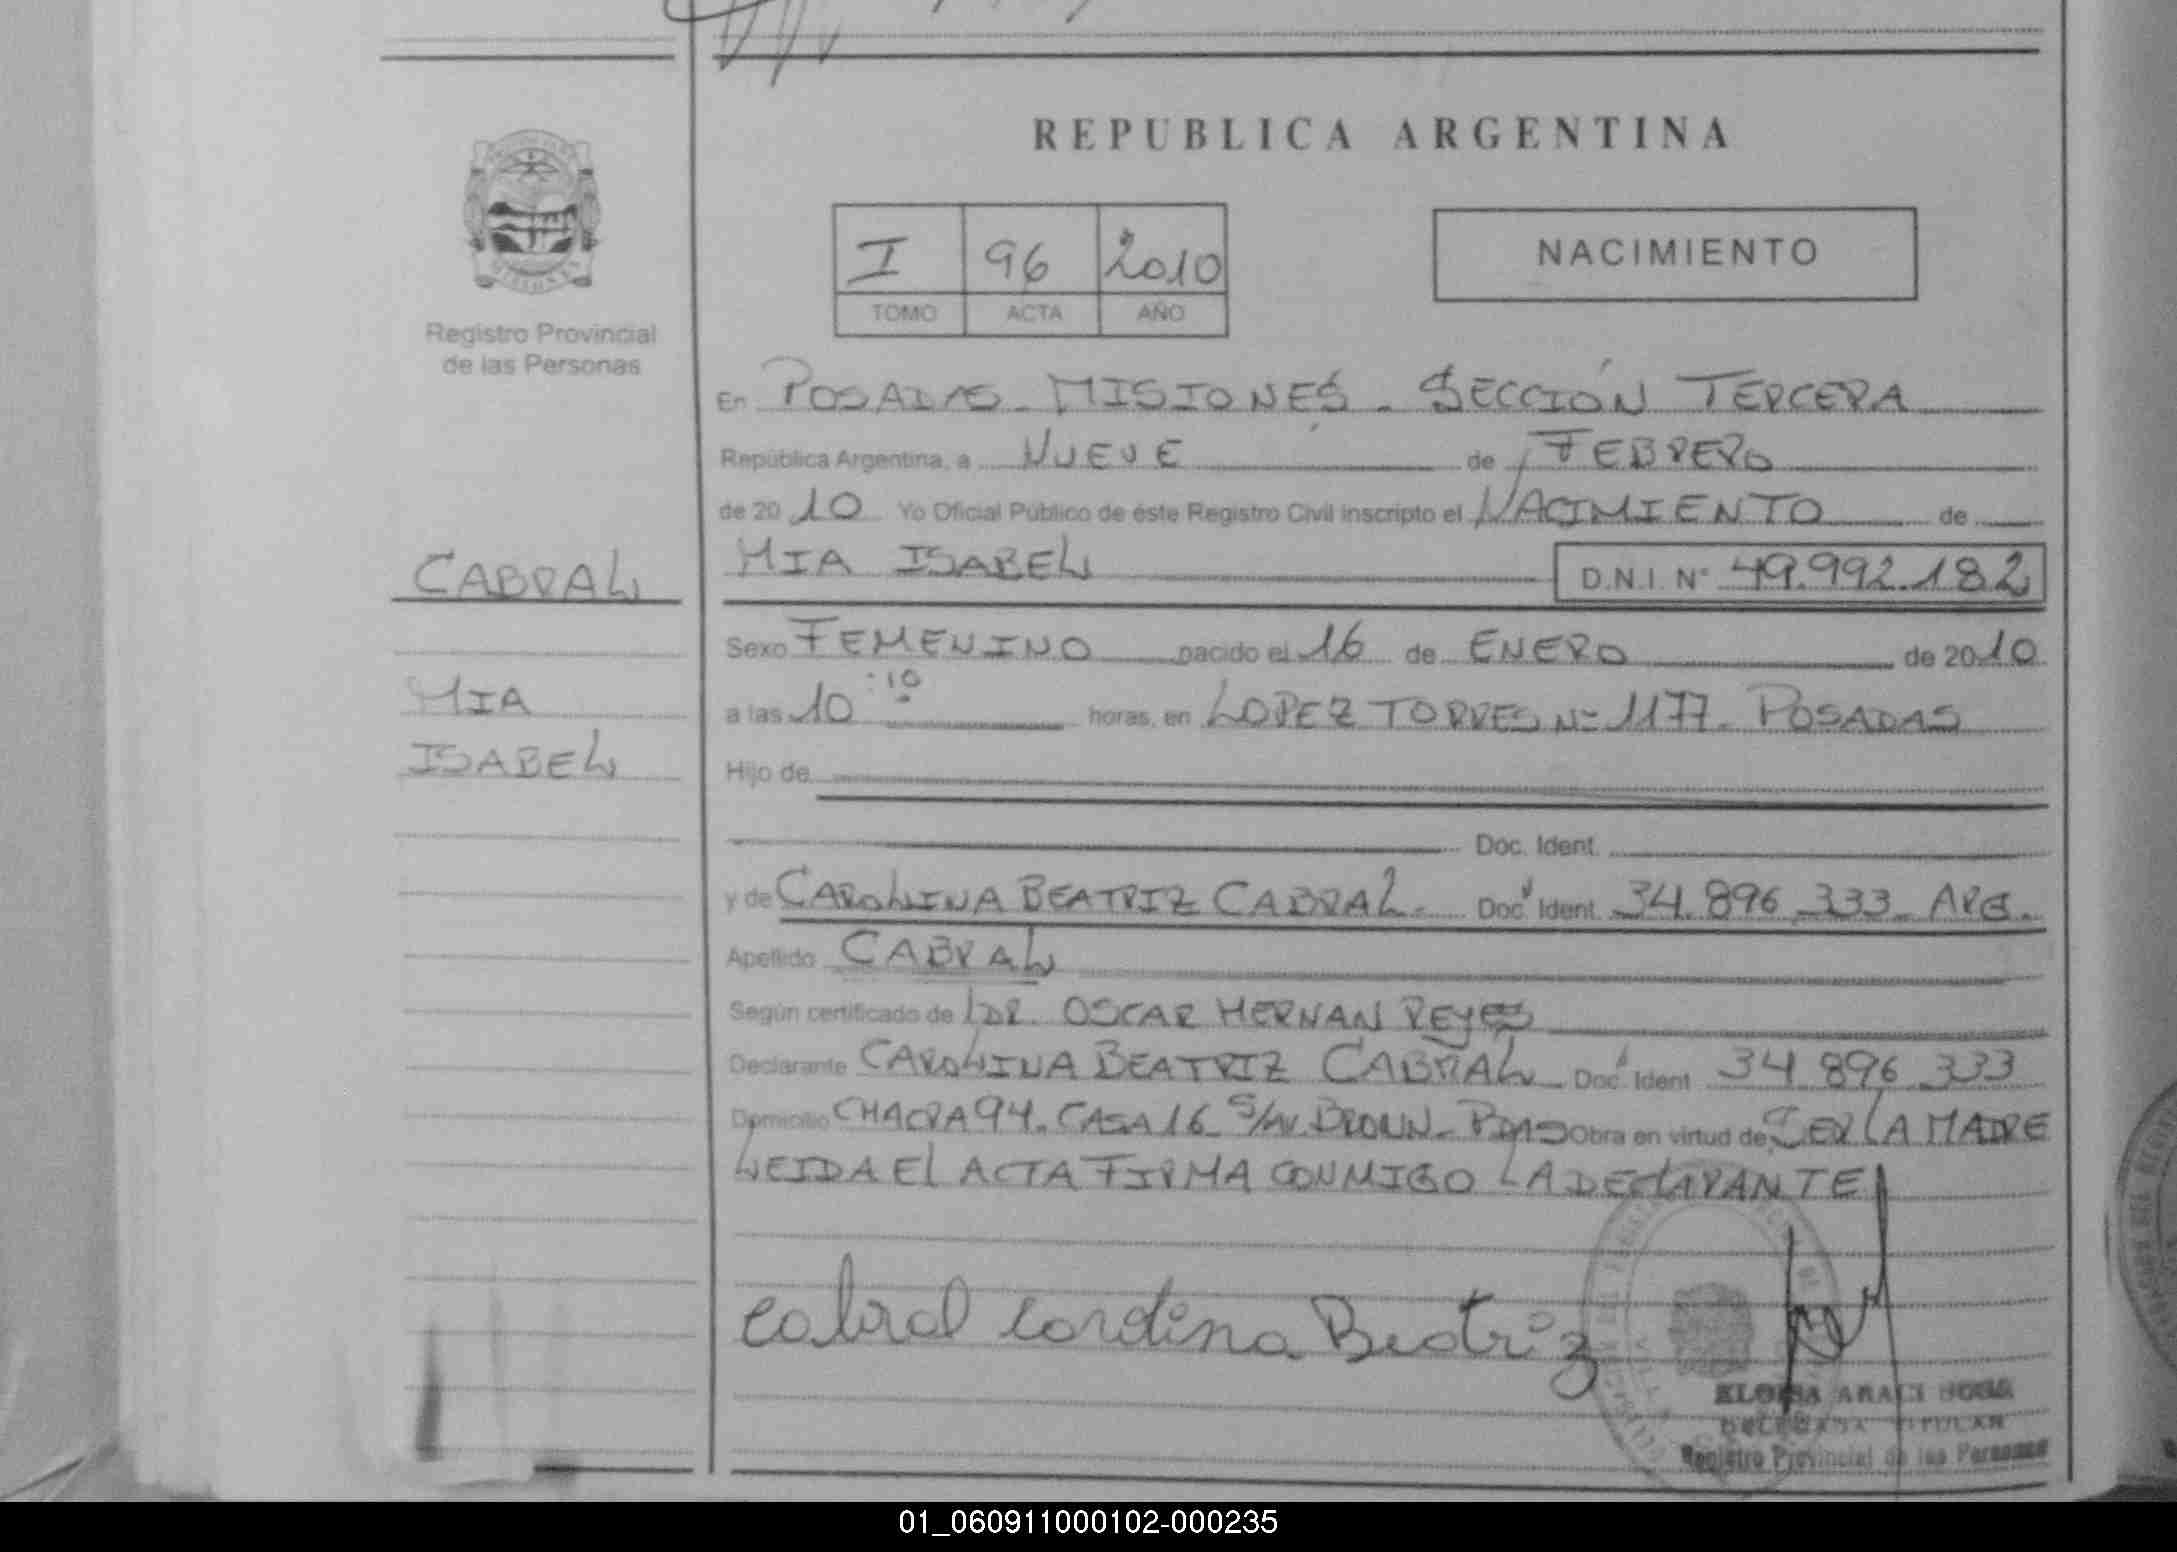 REPUBLICA ARGENTINA
I 96 2010
TOMO ACTA AÑO
NACIMIENTO
Registro Provincial
de las Personas
CABRAL
MIA
ISABEL
En POSADAS - MISIONES - SECCIÓN TERCERA
República Argentina, a NUEVE de FEBRERO
de 2010 Yo Oficial Público de éste Registro Civil inscripto el NACIMIENTO de
MIA ISABEL D.N.I. N° 49.992.182
Sexo FEMENINO nacido el 16 de ENERO de 2010
a las 10:10 horas, en LOPEZ TORRES Nº 1177 - POSADAS
Hijo de
Doc. Ident.
y de CAROLINA BEATRIZ CABRAL - Doc. Ident. 34.896.333 - ARG.
Apellido CABRAL
Según certificado de DR. OSCAR HERNAN REYES
Declarante CAROLINA BEATRIZ CABRAL Doc. Ident 34.896.333
Domicilio CHACRA 94 - CASA 16 S/AV. BROWN - PDAS Obra en virtud de SER LA MADRE
LEIDA El ACTA FIRMA CONMIGO LA DECLARANTE
Cabral Carolina Beatriz
ELOISA ARACI
DELEGADA TITULAR
Registro Provincial de las Personas
01_060911000102-000235